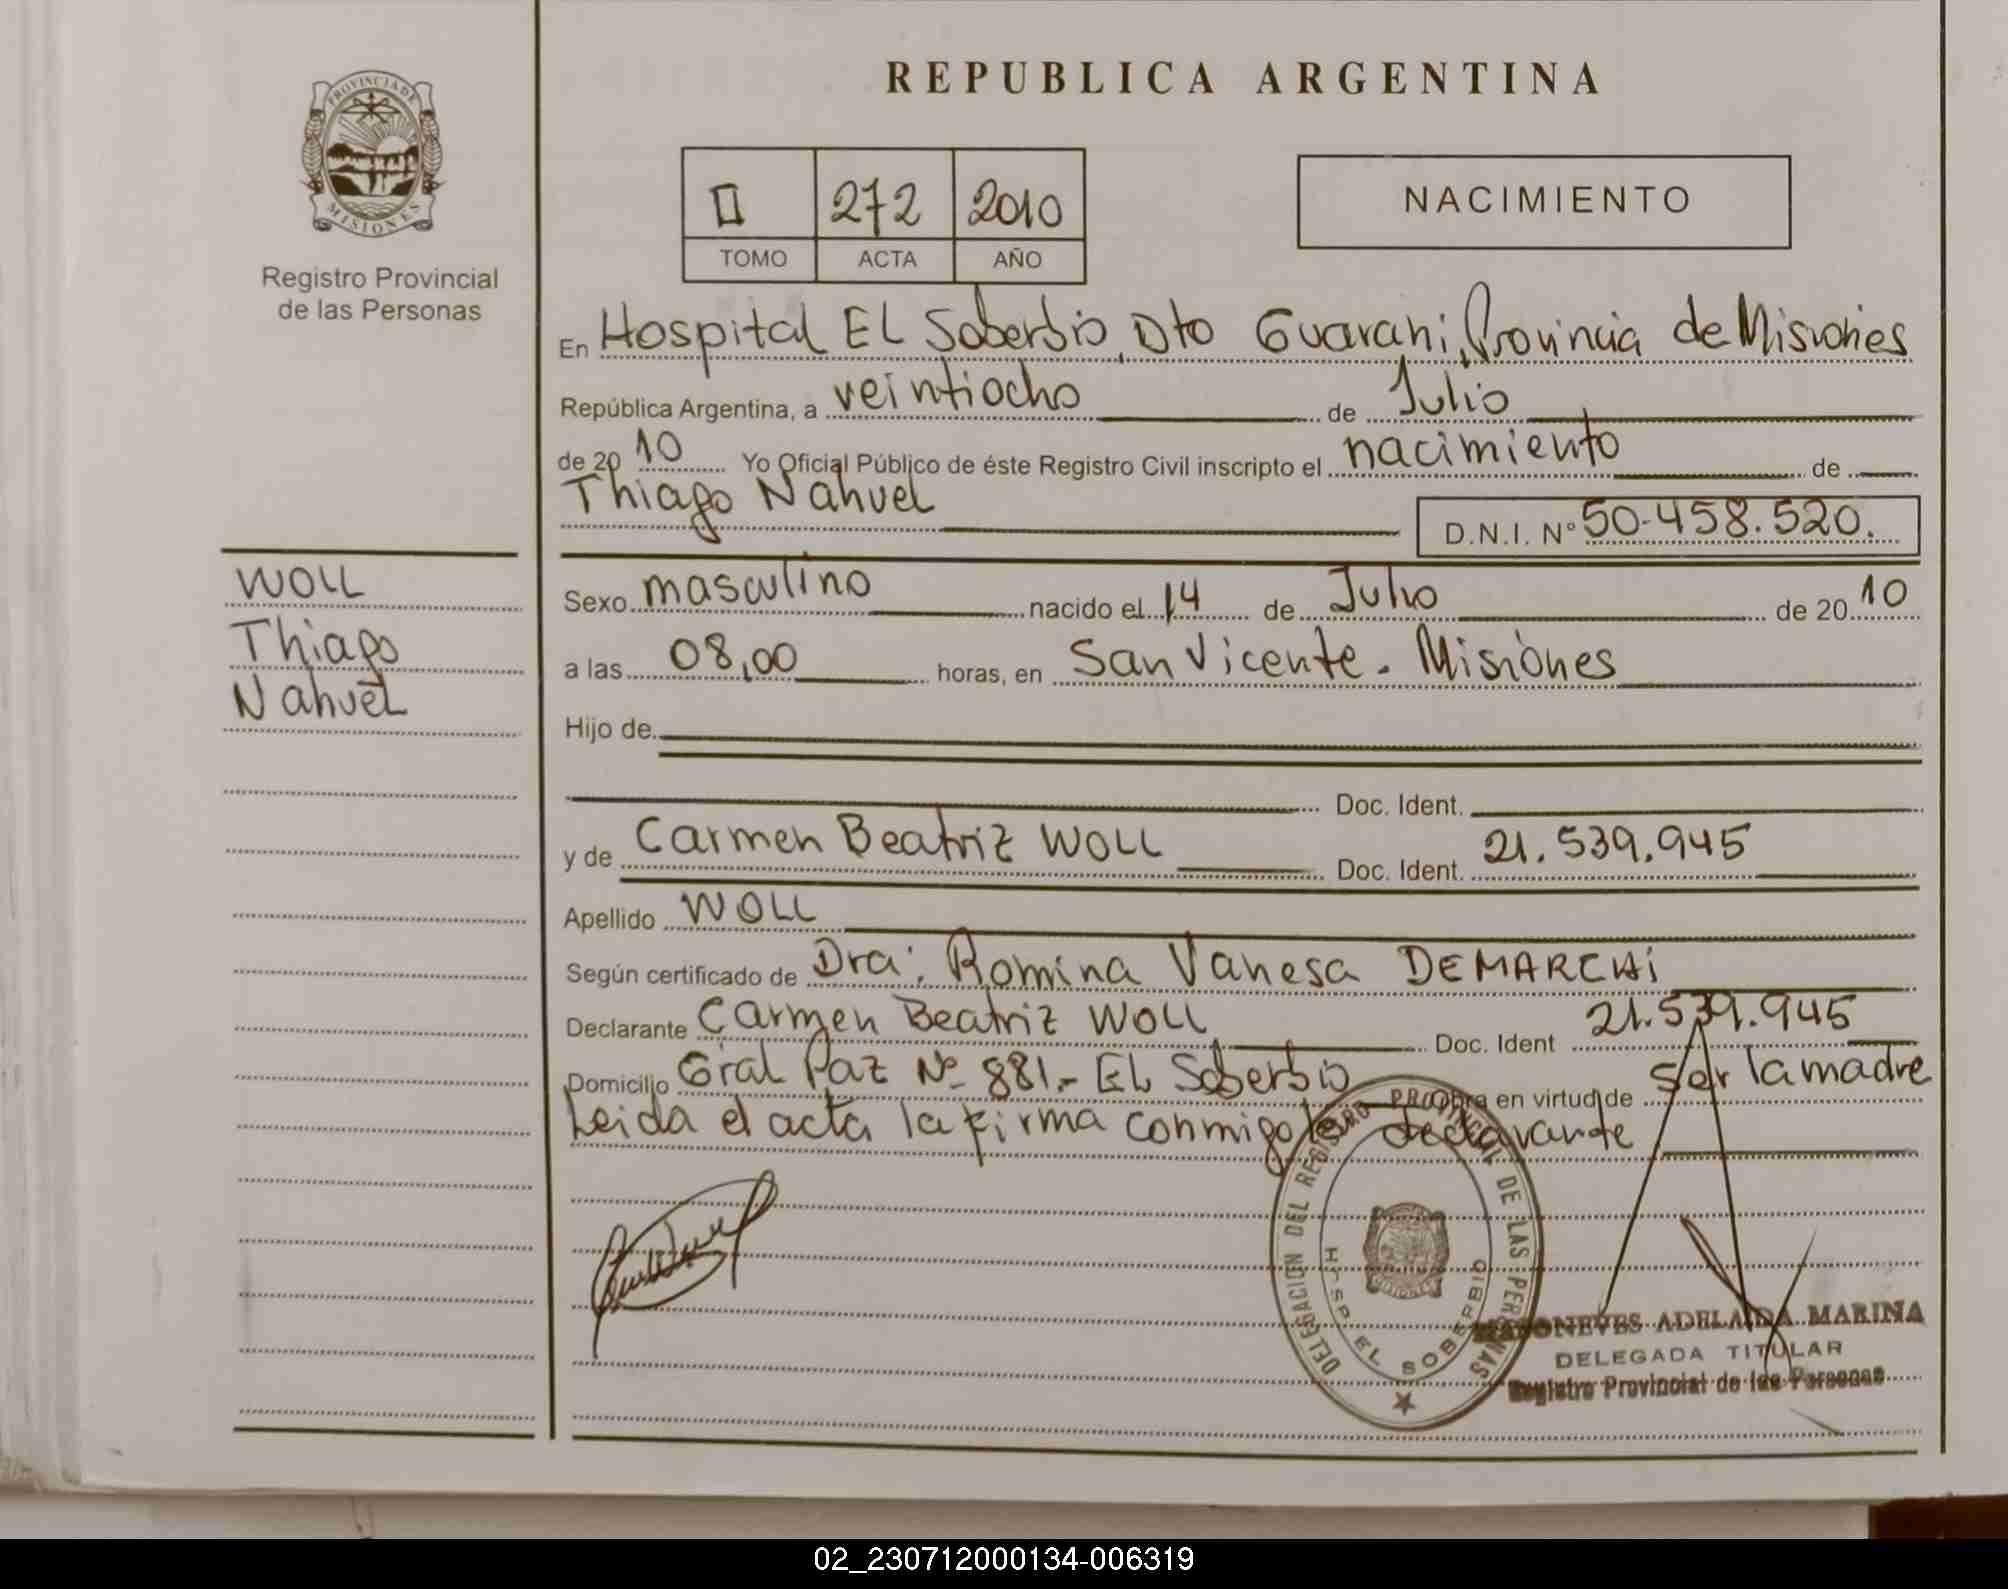 REPUBLICA ARGENTINA
PROVINCIA DE
MISIONES
Registro Provincial
de las Personas
II 272 2010
TOMO ACTA AÑO
NACIMIENTO
En Hospital EL Soberbio, Dto Guarani, Provincia de Misiones
República Argentina, a veintiocho de Julio
de 2010 Yo Oficial Público de éste Registro Civil inscripto el nacimiento de
Thiago Nahuel D.N.I. Nº 50.458.520.
WOLL
Thiago
Nahuel
Sexo masculino nacido el 14 de Julio de 2010
a las 08,00 horas, en San Vicente. Misiones
Hijo de
Doc. Ident.
y de Carmen Beatriz WOLL Doc. Ident. 21.539.945
Apellido WOLL
Según certificado de Dra: Romina Vanesa DEMARCHI
Declarante Carmen Beatriz WOLL Doc. Ident 21.539.945
Domicilio Gral Paz Nº 881.- EL Soberbio Obra en virtud de ser la madre
Leida el acta la firma conmigo la declarante
DELEGACION DEL REGISTRO PROVINCIAL DE LAS PERSONAS
HOSP. EL SOBERBIO
ADELAIDA MARINA
DELEGADA TITULAR
Registro Provincial de las Personas
02_230712000134-006319